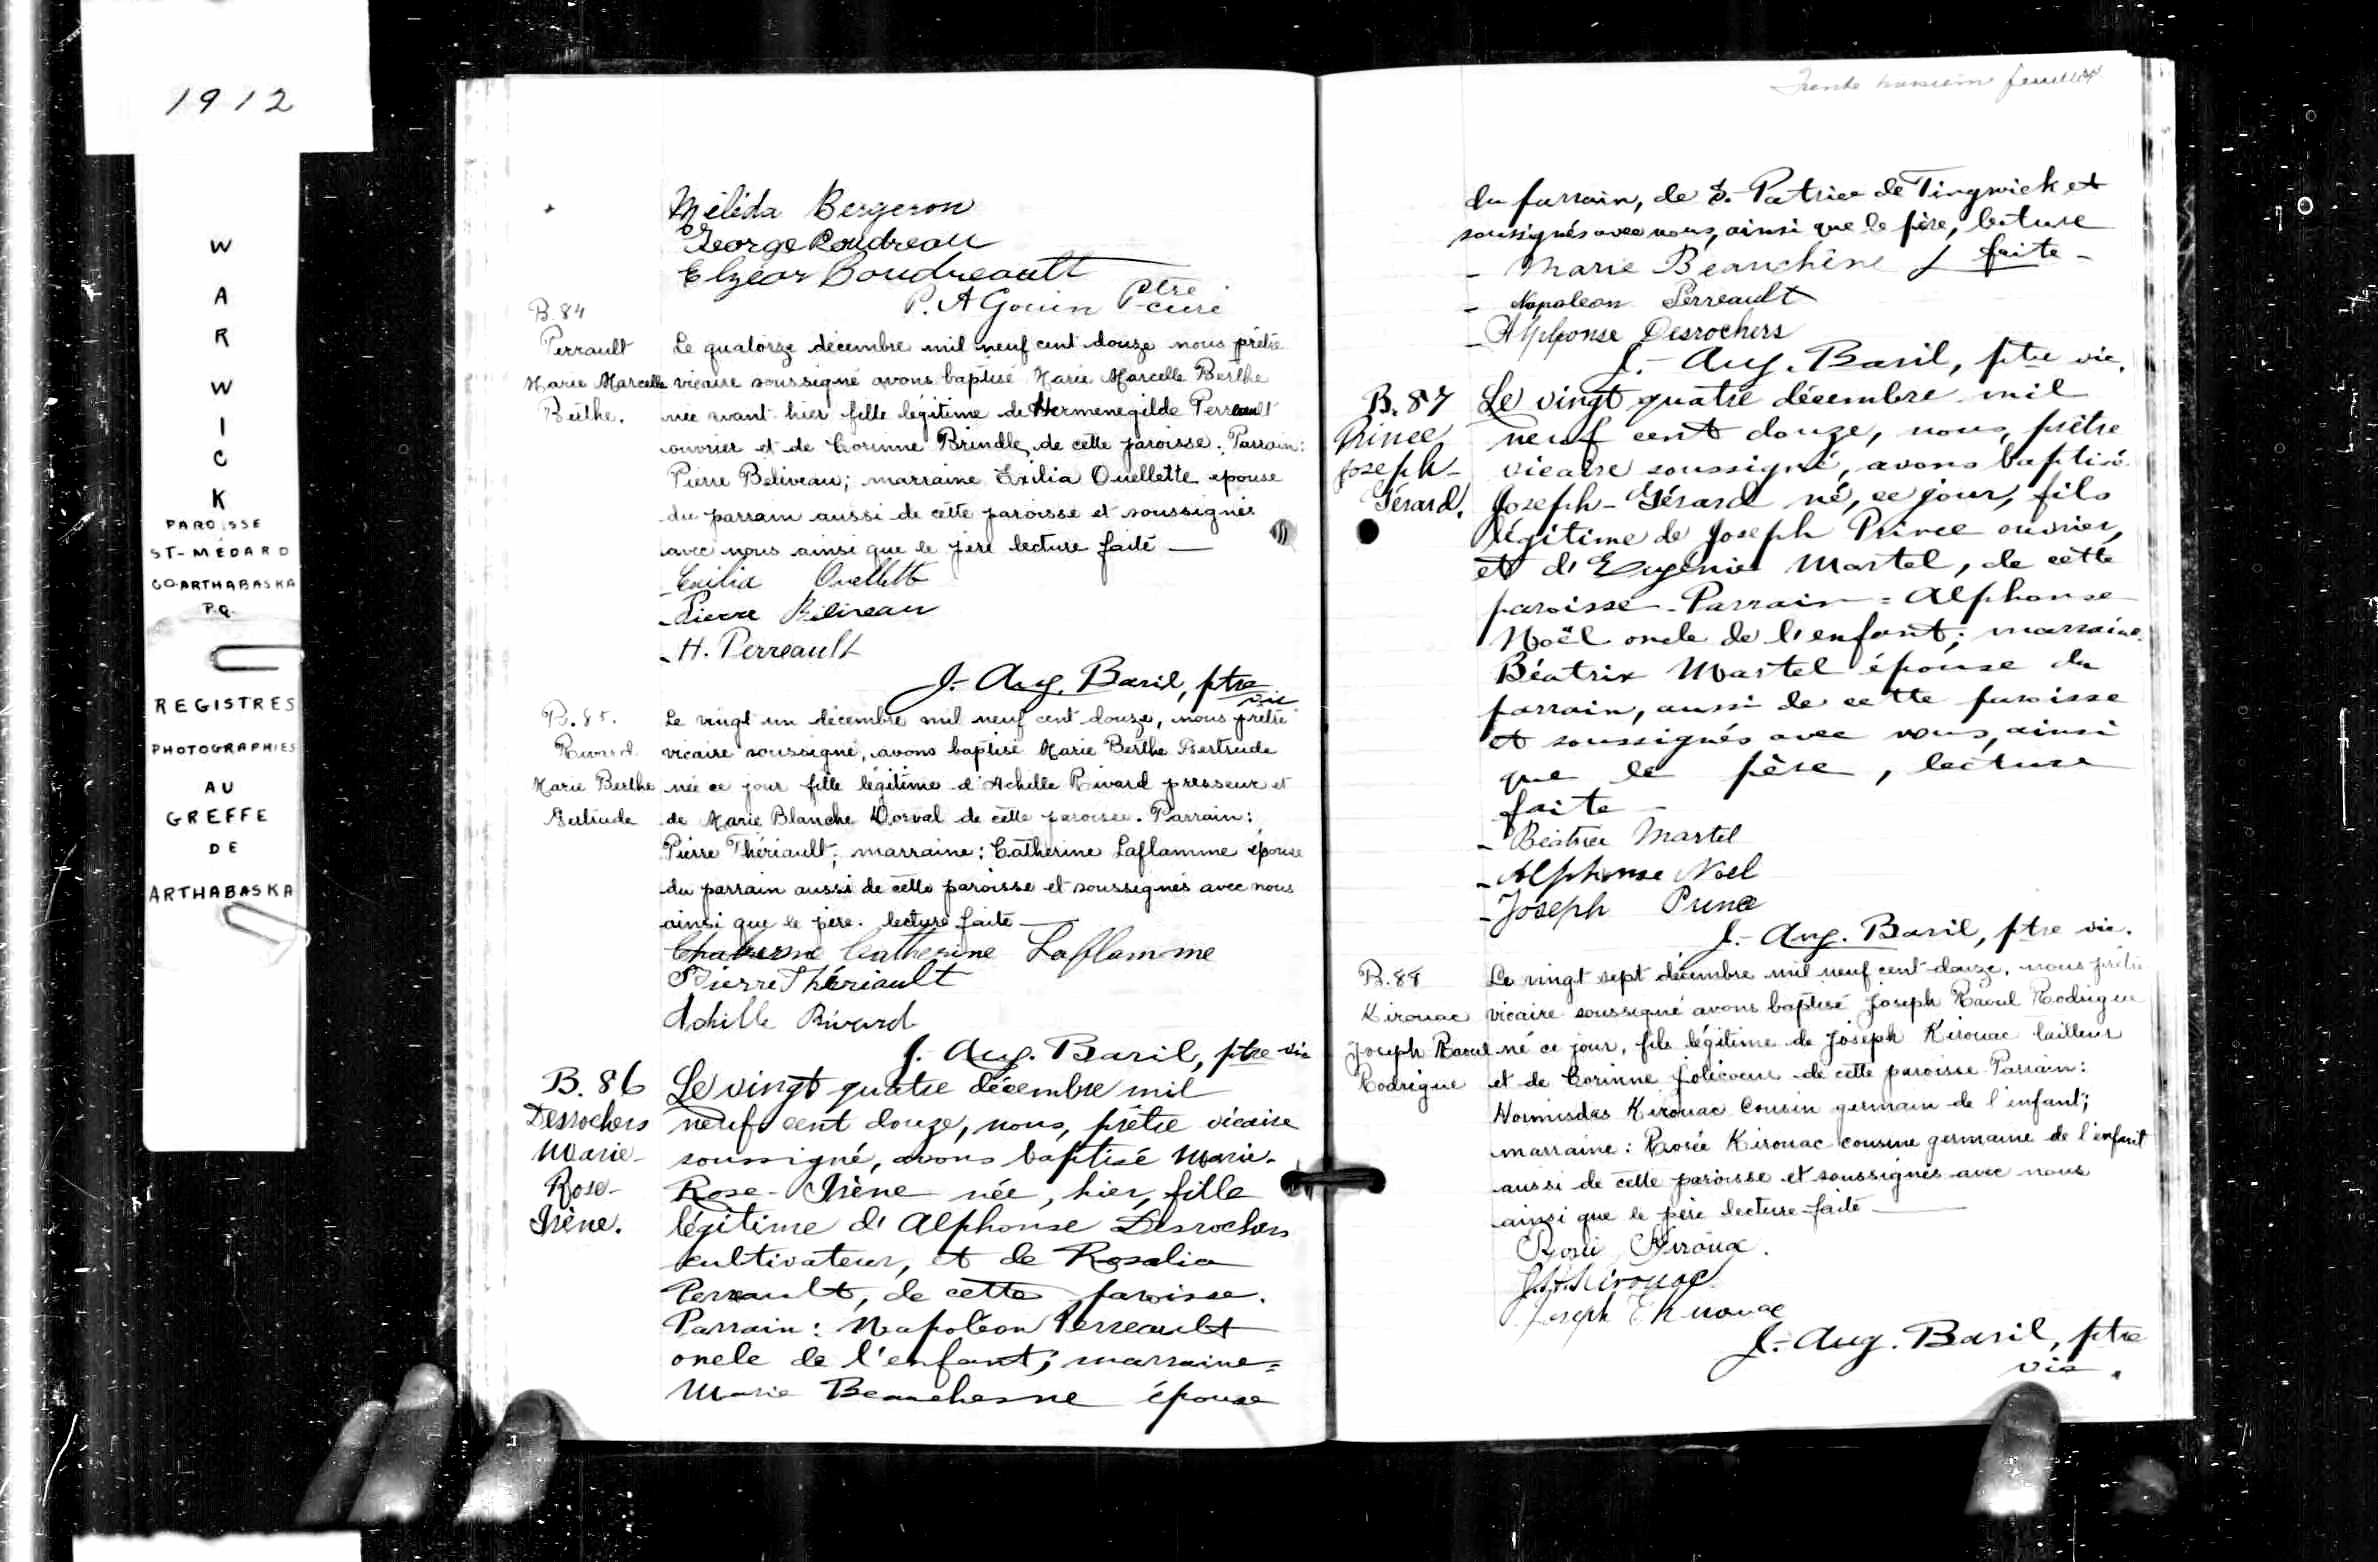 1912
WARWICK
PAROISSE
ST-MÉDARD
CO-ARTHABASKA
P.Q.
REGISTRES
PHOTOGRAPHIES
AU
GREFFE
DE
ARTHABASKA
Mélida Bergeron
George Boudreau
Elzéar Boudreault
P. A Gouin Ptre
curé
B. 84
Perrault
Marie Marcelle
Berthe.
Le quatorze décembre mil neuf cent douze nous prêtre
vicaire soussigné avons baptisé Marie Marcelle Berthe
née avant hier fille légitime de Hermenegilde Perreault
ouvrier et de Corinne Brindle, de cette paroisse. Parrain:
Pierre Beliveau; marraine Exilia Ouellette epouse
du parrain aussi de cette paroisse et soussignés
avec nous ainsi que le père lecture faite —
Exilia Ouellette
Pierre Béliveau
H. Perreault
J.- Aug. Baril, ptre
vic
B. 85.
Rivard
Marie Berthe
Gertrude
Le vingt un décembre mil neuf cent douze, nous prêtre
vicaire soussigné, avons baptisé Marie Berthe Gertrude
née ce jour fille légitime d'Achille Rivard presseur et
de Marie Blanche Dorval de cette paroisse. Parrain:
Pierre Thériault; marraine: Catherine Laflamme épouse
du parrain aussi de cette paroisse et soussignés avec nous
ainsi que le père. lecture faite —
Catherine Laflamme
Pierre Thériault
Achille Rivard
J. Aug. Baril, ptre vic
B. 86
Desrochers
Marie-
Rose-
Irène.
Le vingt quatre décembre mil
neuf cent douze, nous, prêtre vicaire
soussigné, avons baptisé Marie-
Rose-Irène née, hier, fille
légitime d'Alphonse Desrochers
cultivateur, et de Rosalia
Perrault, de cette paroisse.
Parrain: Napoléon Perreault
oncle de l'enfant; marraine=
Marie Beauchesne épouse
Trente feuillet
du parrain, de S.- Patrice de Tingwick et
soussignés avec nous, ainsi que le père, lecture
- Marie Beauchêne faite -
- Napoleon Perreault
- Alphonse Desrochers
J.- Aug. Baril, ptre vic.
B. 87
Prince
Joseph-
Gérard.
Le vingt quatre décembre mil
neuf cent douze, nous, prêtre
vicaire soussigné, avons baptisé
Joseph-Gérard né, ce jour, fils
légitime de Joseph Prince ouvrier,
et d'Eugénie Martel, de cette
paroisse. Parrain= Alphonse
Noël oncle de l'enfant; marraine
Béatrix Martel épouse du
parrain, aussi de cette paroisse
et soussignés avec nous, ainsi
que le père, lecture
faite -
- Béatrice Martel
- Alphonse Noel
- Joseph Prince
J.- Aug. Baril, ptre vic.
B. 88
Kirouac
Joseph Raoul
Rodrigue
Le vingt sept décembre mil neuf cent douze, nous prêtre
vicaire soussigné avons baptisé Joseph Raoul Rodrigue
né ce jour, fils légitime de Joseph Kirouac tailleur
et de Corinne Jolicoeur de cette paroisse Parrain:
Hormisdas Kirouac Cousin germain de l'enfant;
marraine: Rosée Kirouac cousine germaine de l'enfant
aussi de cette paroisse et soussignés avec nous
ainsi que le père lecture faite —
Kirouac
Joseph Kirouac
J.- Aug. Baril, ptre
vic.